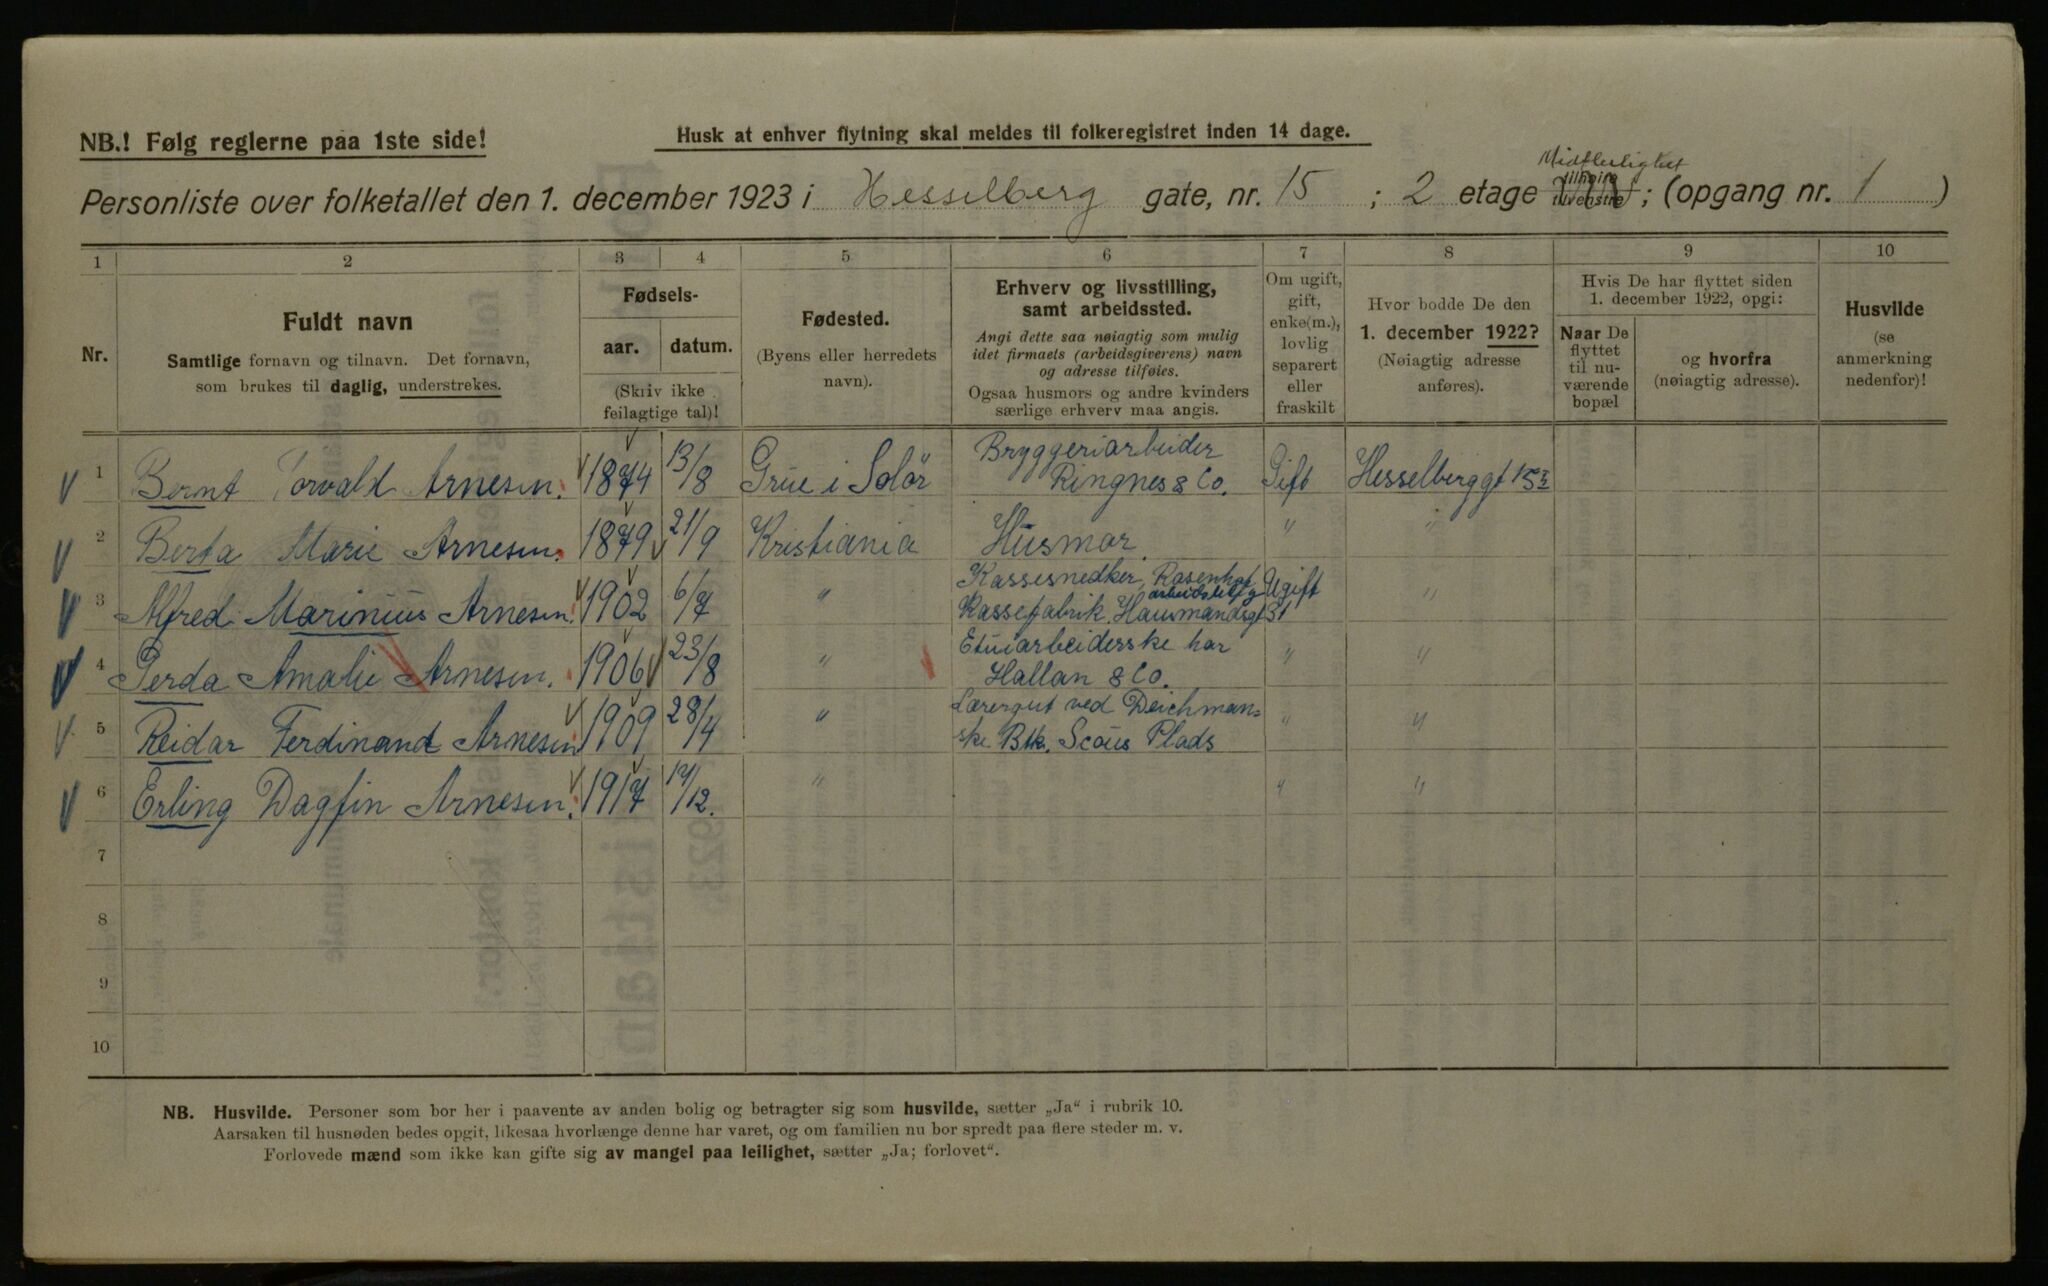 NB.! Følg reglerne paa 1ste side!
Husk at enhver flytning skal meldes til folkeregistret inden 14 dage.
Midtleilighet
Personliste over folketallet den 1. december 1923 i Hesselberg gate, nr. 15 ; 2 etage tilhøire tilvenstre ; (opgang nr. 1 )
1 2 3 4 5 6 7 8 9 10
Nr.
Fuldt navn
Samtlige fornavn og tilnavn. Det fornavn,
som brukes til daglig, understrekes.
Fødsels-
aar. datum.
(Skriv ikke
feilagtige tal)!
Fødested.
(Byens eller herredets
navn).
Erhverv og livsstilling,
samt arbeidssted.
Angi dette saa nøiagtig som mulig
idet firmaets (arbeidsgiverens) navn
og adresse tilføies.
Ogsaa husmors og andre kvinders
særlige erhverv maa angis.
Om ugift,
gift,
enke(m.),
lovlig
separert
eller
fraskilt
Hvor bodde De den
1. december 1922?
(Nøiagtig adresse
anføres).
Hvis De har flyttet siden
1. december 1922, opgi:
Naar De
flyttet
til nu-
værende
bopæl
og hvorfra
(nøiagtig adresse).
Husvilde
(se
anmerkning
nedenfor)!
1 Bernt Torvald Arnesen. 1874 13/8 Grue i Solör Bryggeriarbeider Ringnes & Co. Gift Hesselberggt 15
2 Berta Marie Arnesen. 1879 21/9 Kristiania Husmor. " "
3 Alfred Marinius Arnesen. 1902 6/7 " Kassesnedker, Rosenhof Ugift "
arbeidsledig
Kassefabrik. Hausmandsgt 31
4 Gerda Amalie Arnesen. 1906 23/8 " Etuiarbeiderske har " "
Hallan & Co.
5 Reidar Ferdinand Arnesen 1909 28/4 " Lærergut ved Deichman= " "
ske. Btk. Scous Plads
6 Erling Dagfin Arnesen. 1917 17/12. " " "
7
8
9
10
NB. Husvilde. Personer som bor her i paavente av anden bolig og betragter sig som husvilde, sætter „Ja" i rubrik 10.
Aarsaken til husnøden bedes opgit, likesaa hvorlænge denne har varet, og om familien nu bor spredt paa flere steder m. v.
Forlovede mænd som ikke kan gifte sig av mangel paa leilighet, sætter „Ja; forlovet".